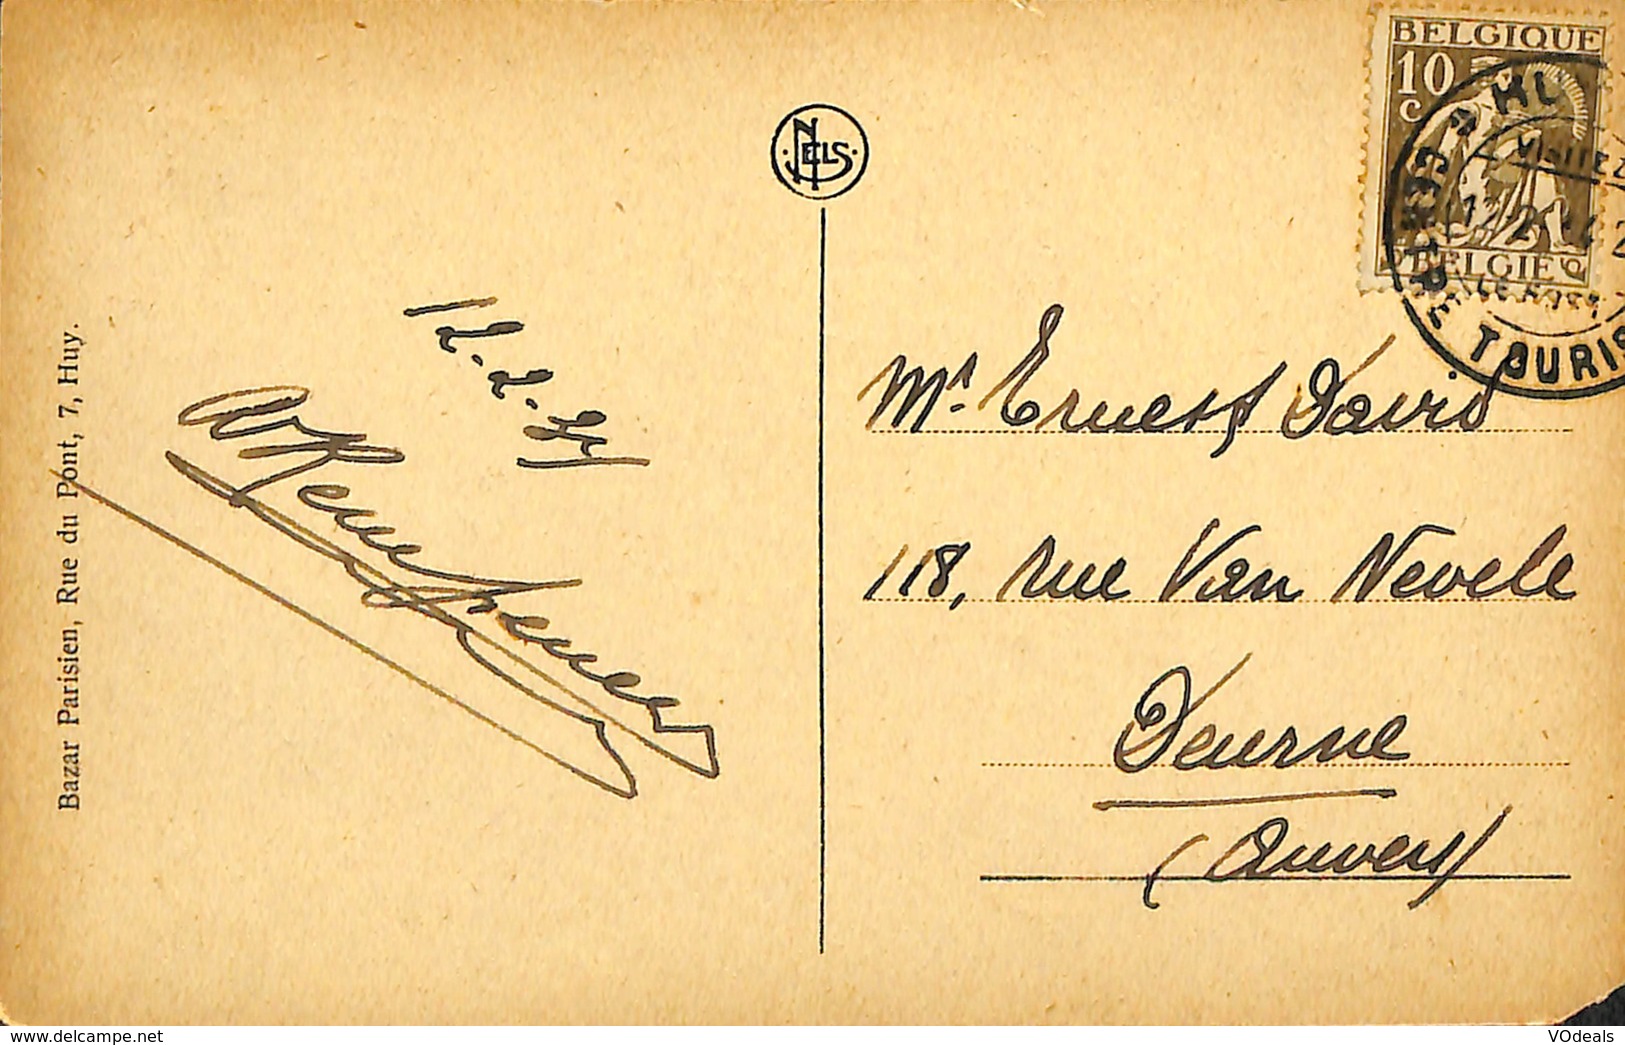 Bazar Parisien, Rue du Pont, 7, Huy.
NELS
BELGIQUE
10
C
BELGIË
VISITEZ
CENTRE TOURIS
12-2-
Mr. Ernest David
118, rue Van Nevele
Deurne
(Anvers)
© delcampe.net
VOdeals